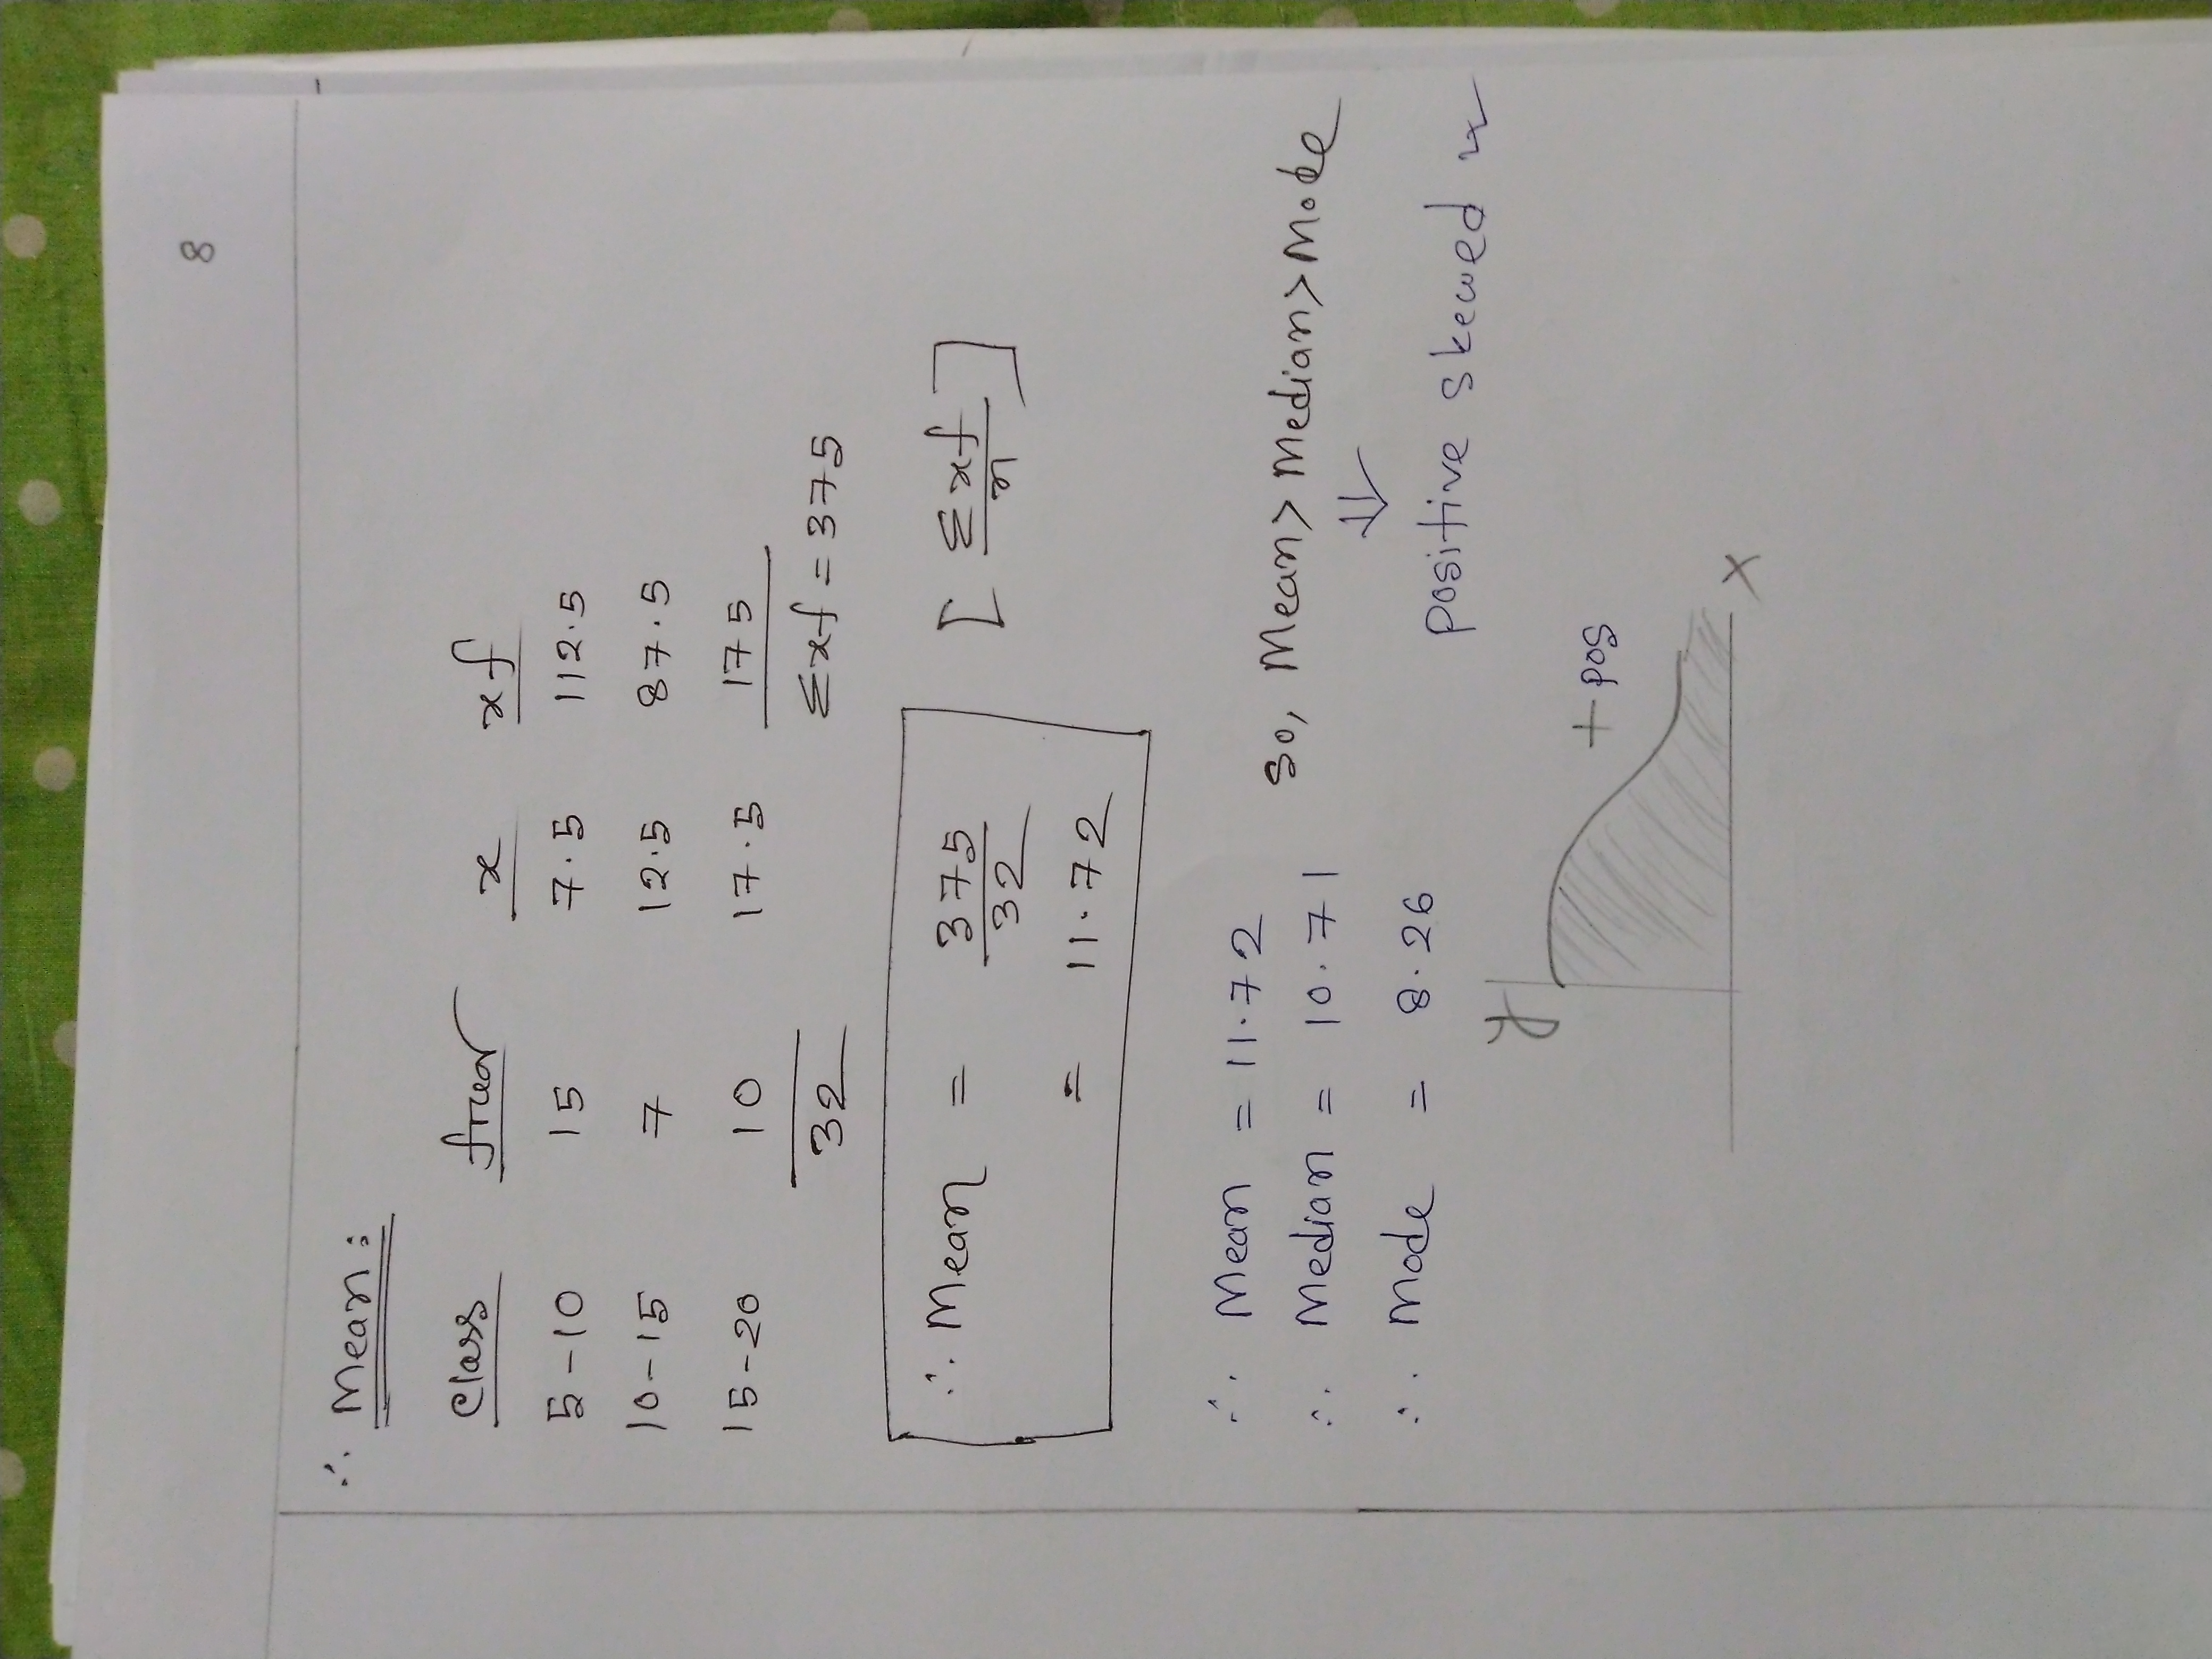 8
∴ Mean:
Class freq x xf
5-10 15 7.5 112.5
10-15 7 12.5 87.5
15-20 10 17.5 175
32 Σxf = 375
∴ Mean = 375/32 [Σxf/n]
= 11.72
∴ Mean = 11.72
∴ Median = 10.71 so, Mean>Median>Mode
∴ Mode = 8.26 ⇓
positive skewed
y
+ pos
x